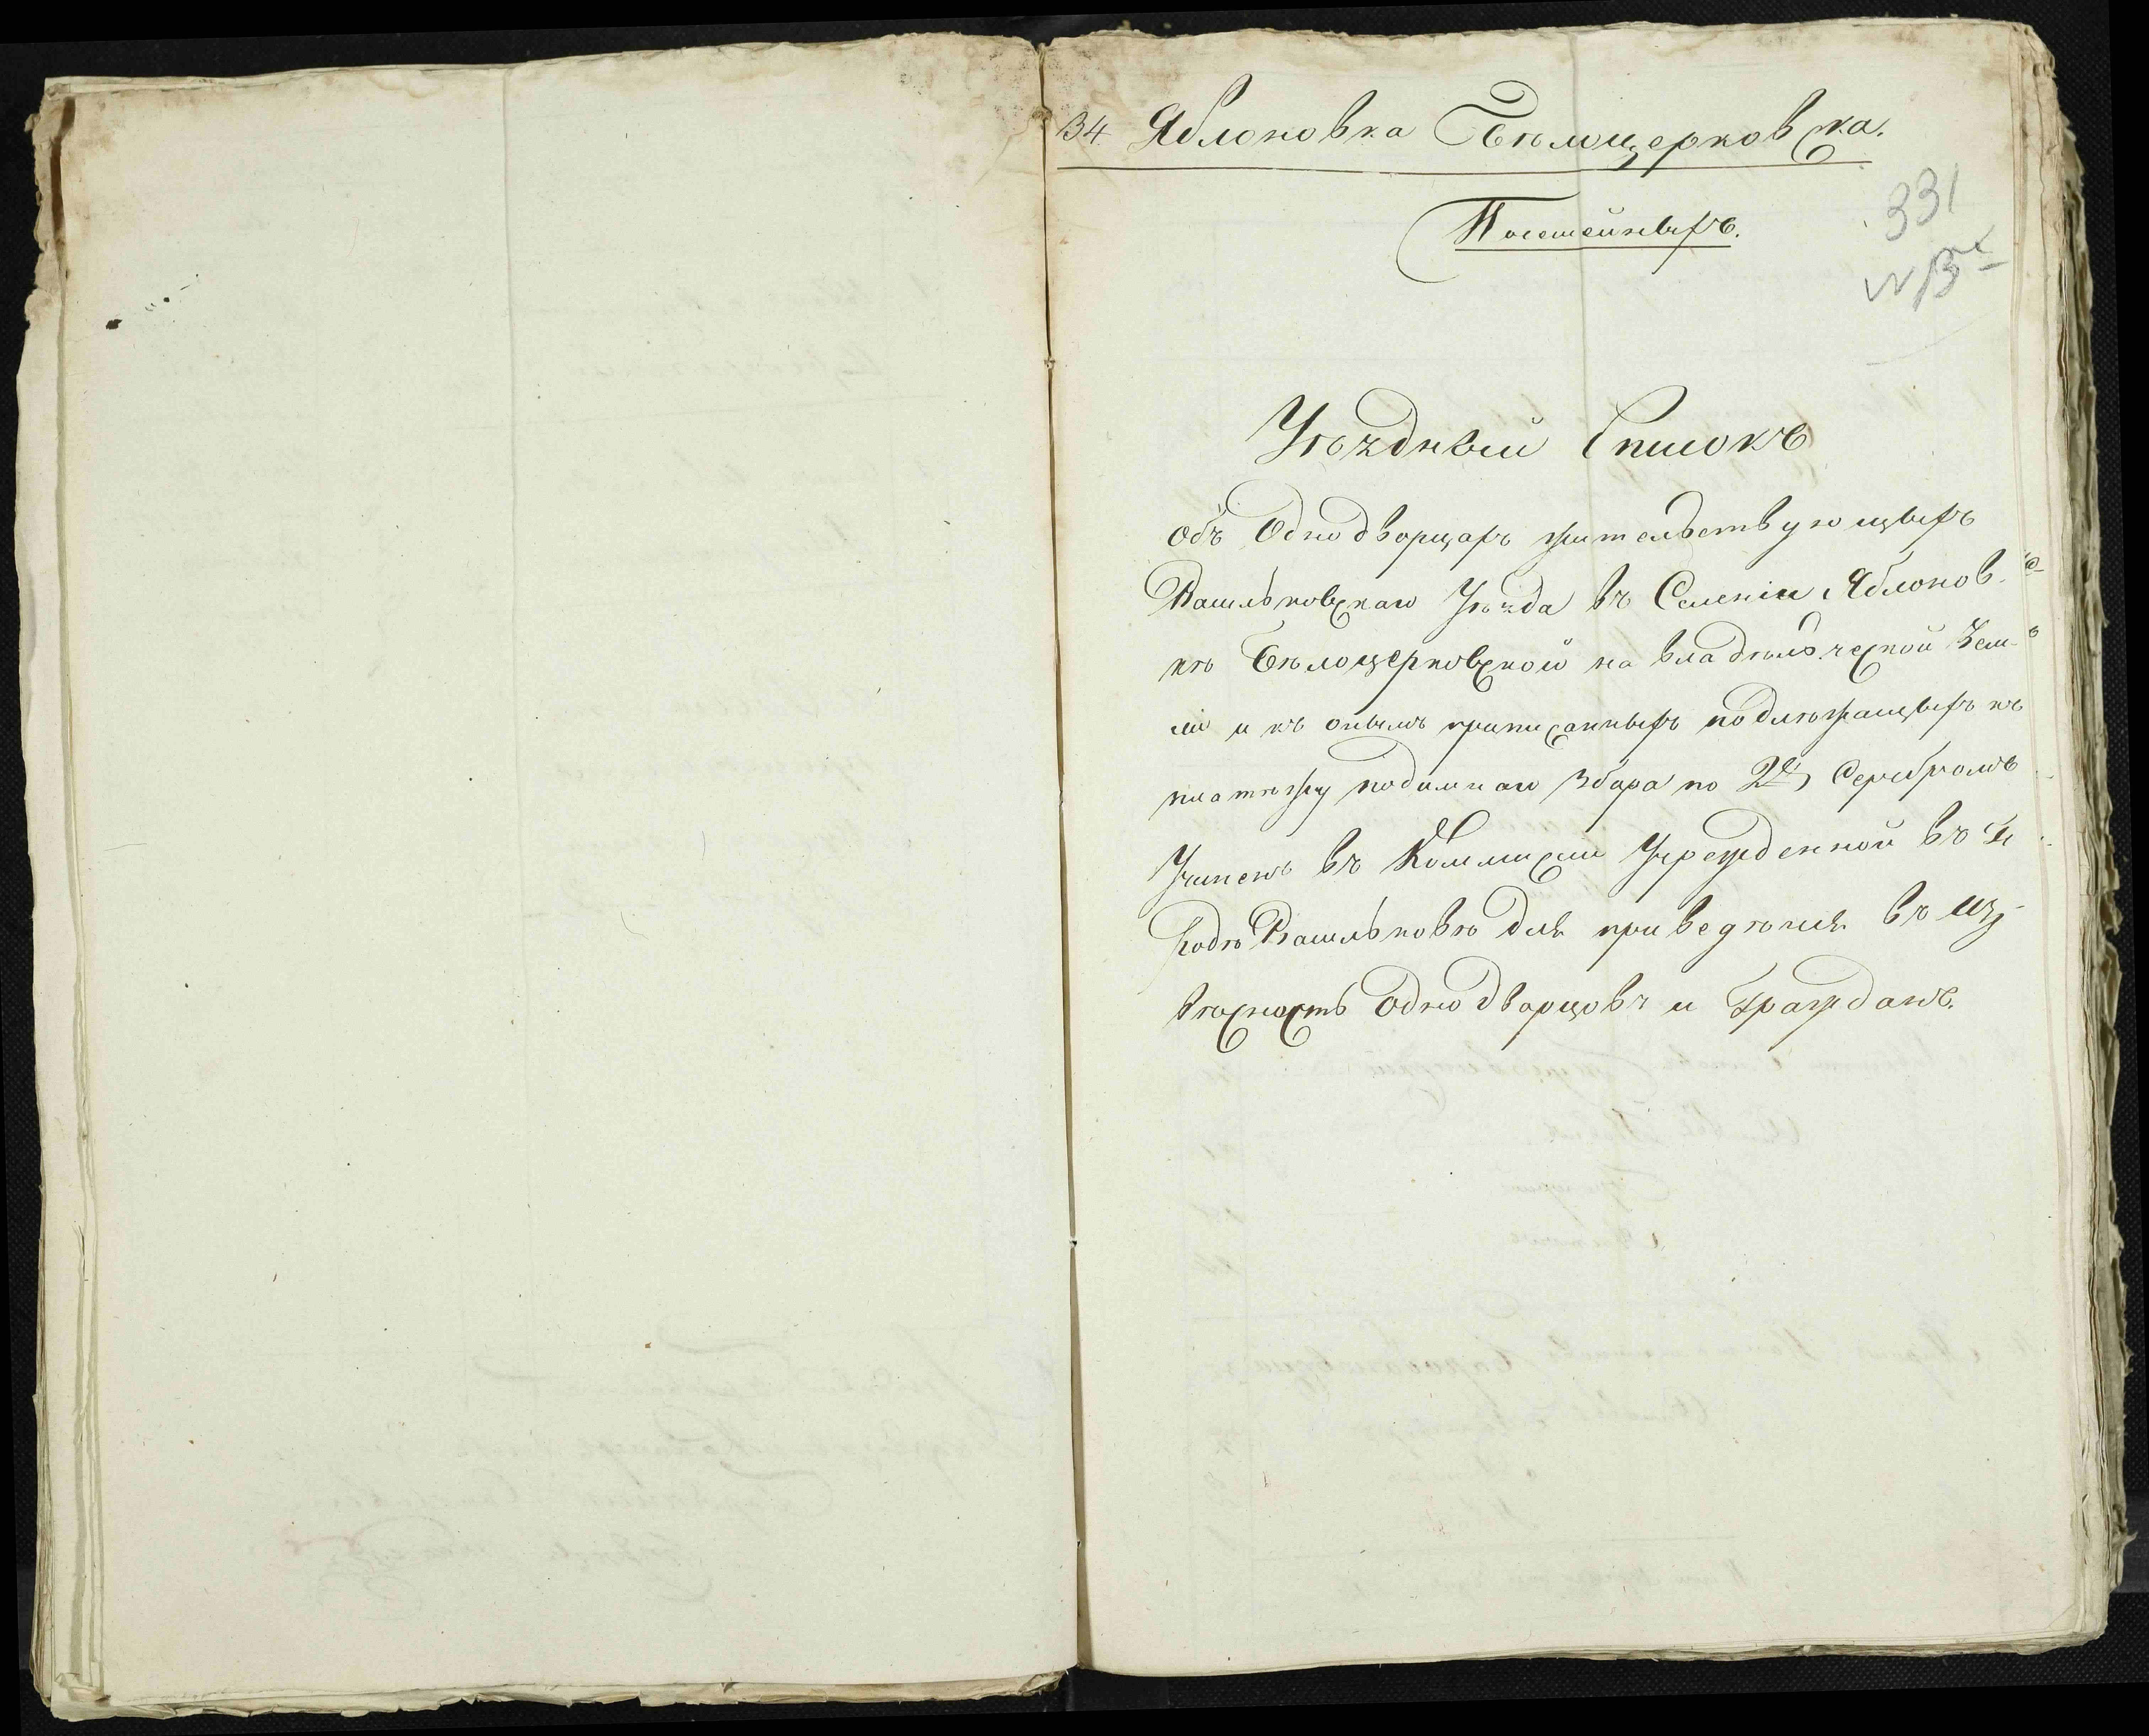 34. Яблоновка Бѣлоцерковска.
331
Уѣздный Списокъ
объ Однодворцахъ жительствующихъ
Васильковскаго Уѣзда въ Селеніи Яблонов-
кѣ Бѣлоцерковской на владѣльческой Зем-
ли и къ онымъ приписанныхъ подлѣжащыхъ къ
платѣжу подимнаго Збора по 2 Серебромъ
Учинен въ Коммисіи Учрежденной въ Го
Родѣ Васильковѣ для приведѣнія въ Из-
вѣсность Однодворцовъ и Гражданъ.